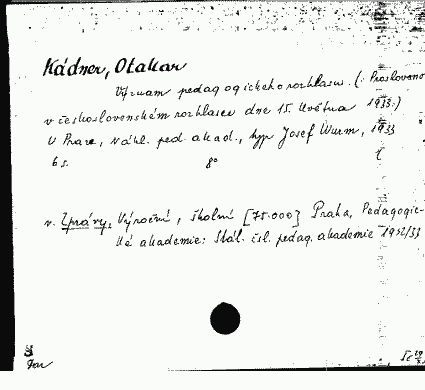 Kádner, Otakar
Význam pedagogického rozhlasu. (Prosloveno
v československém rozhlasu dne 15. května 1933.)
V Praze, nákl. ped. akad., typ. Josef Wurm, 1933
6 s. 8°
v. Zprávy, Výroční, školní [75.000] Praha, Pedagogic-
ká akademie: Stát. čsl. pedag. akademie 1932/33